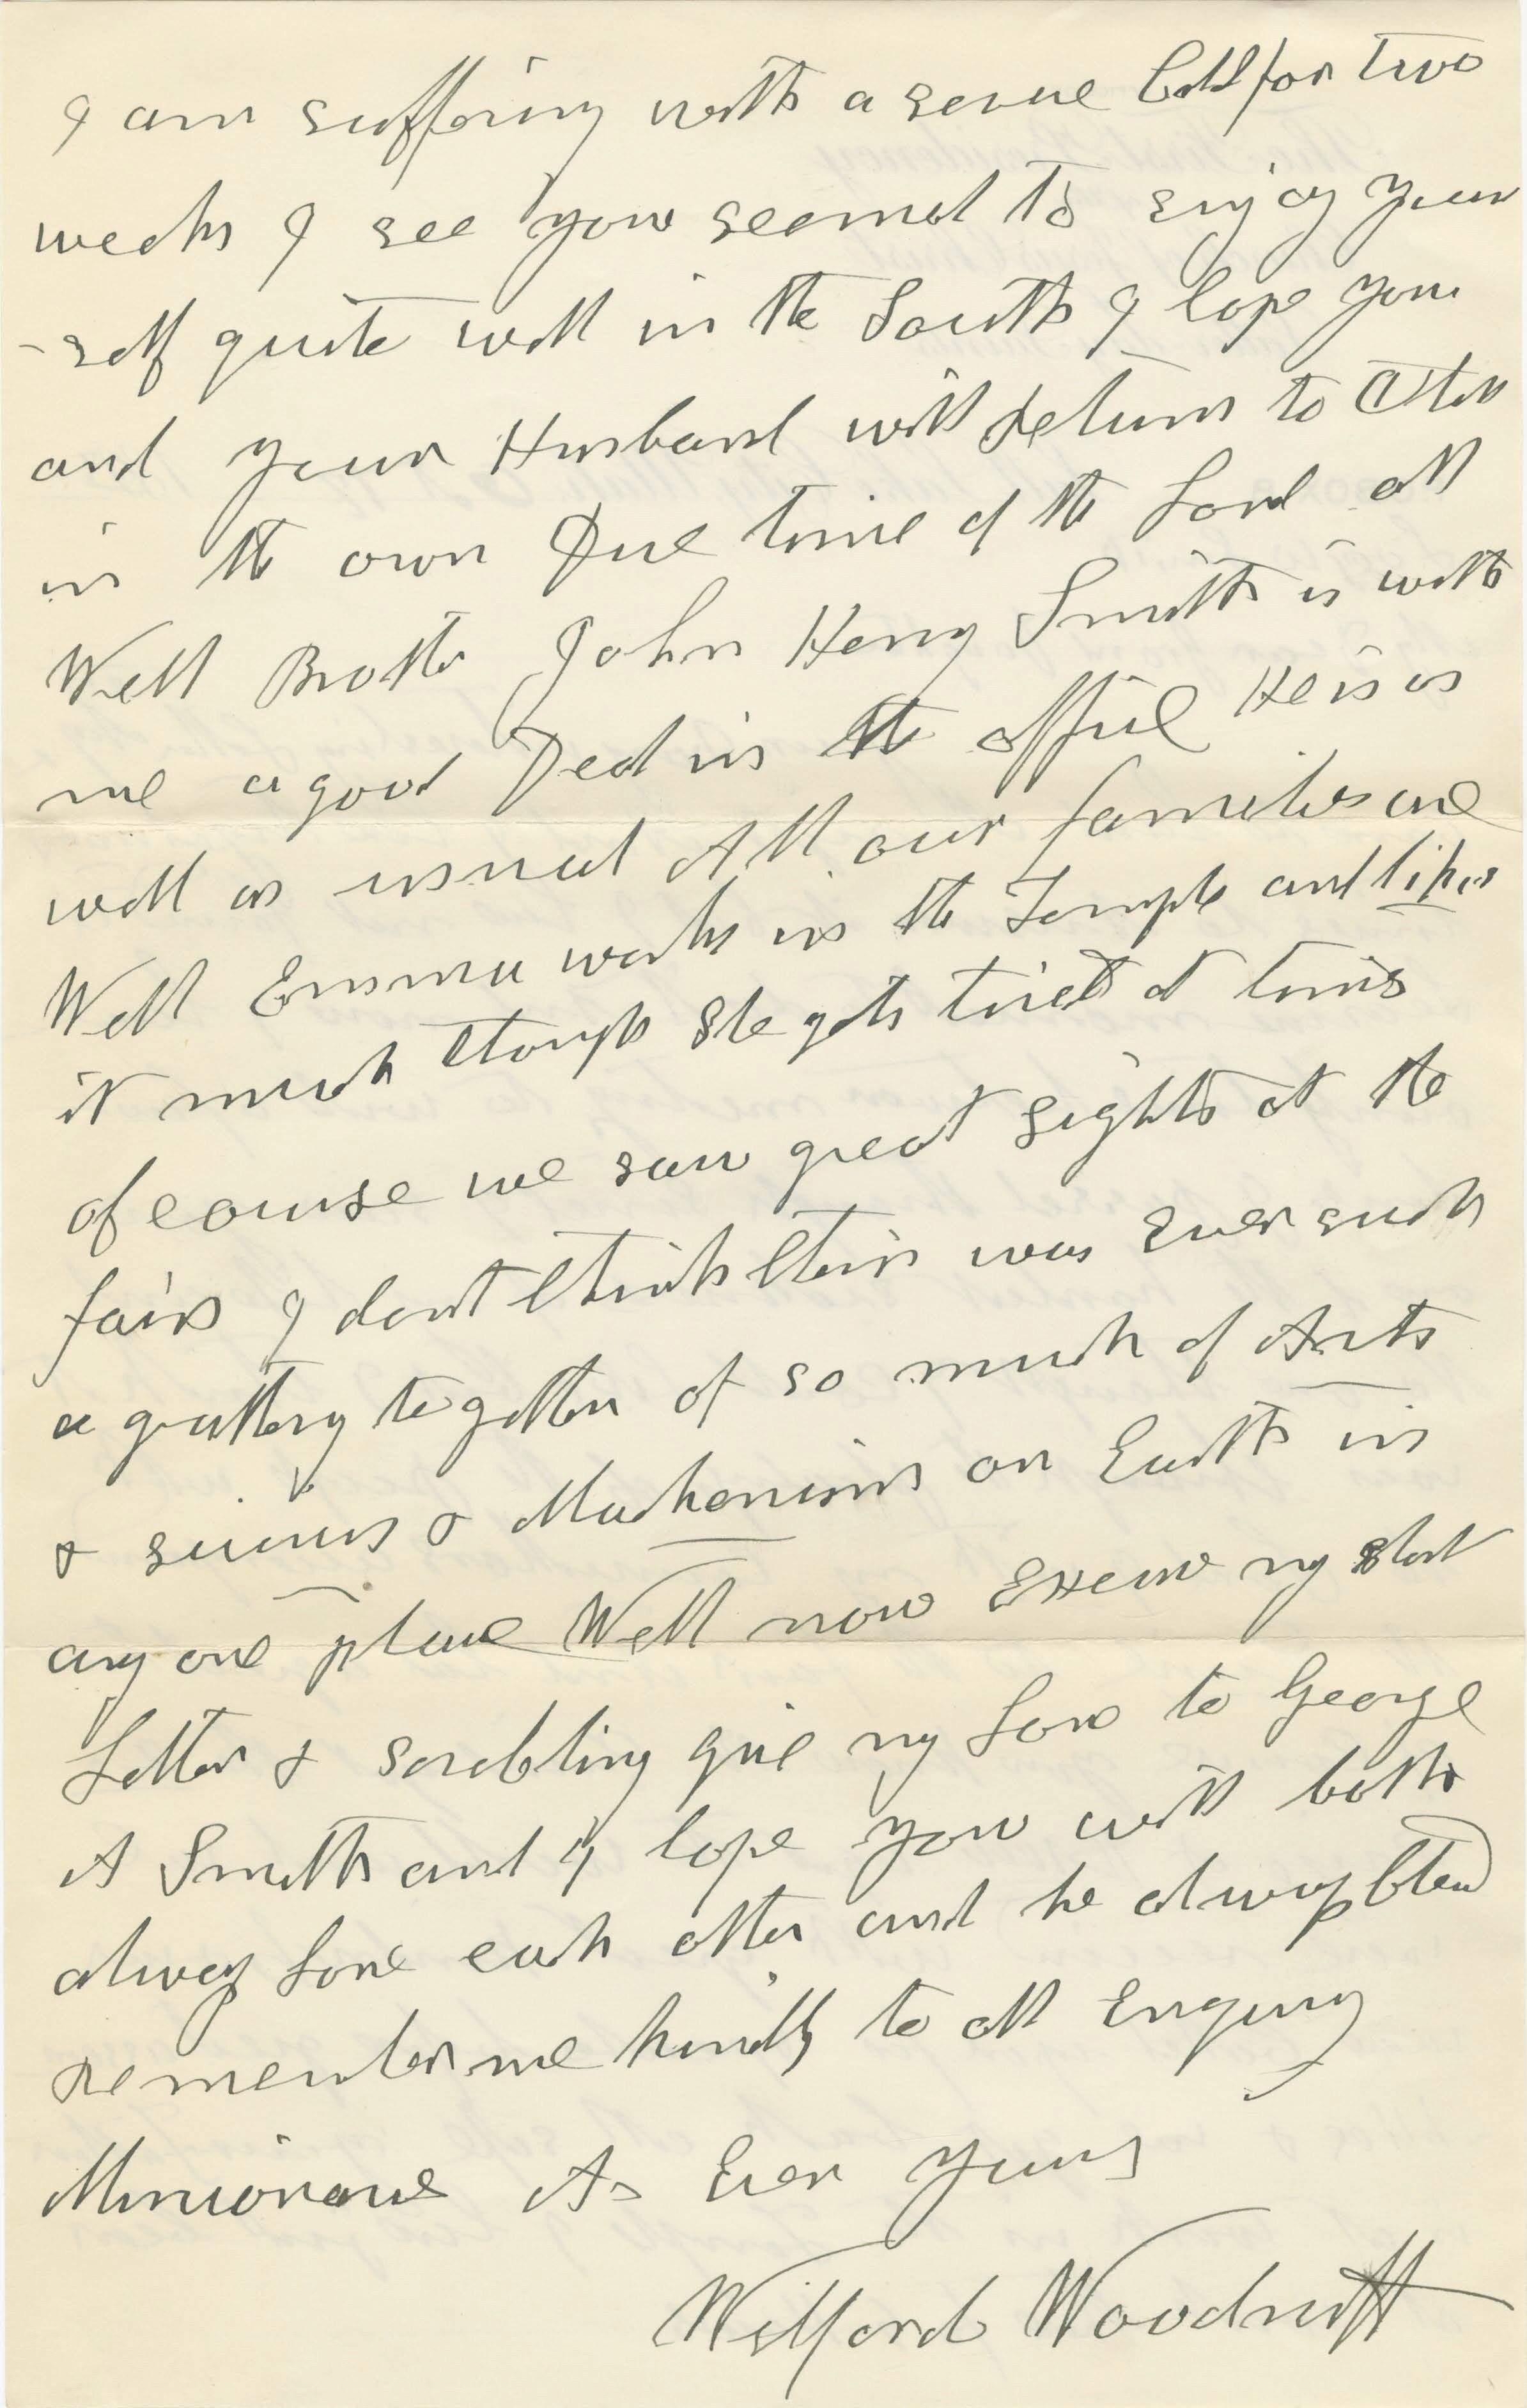 I am suffering with a seveue Cold for two
weeks I see you seemed to enjoy your
-self quite well in the South I hope you
and your Husband will return to Utah
in the own Due time of the Lord all
Well Brother John Henry Smith is with
me a good Deal in the office He is as
well as usual All our families are
Well Emma works in the Temple and likes
it much though she gets tired at times
of course we saw great sights at the
fair I dont think their was Ever such
a gathering together of so much of Arts
& sciences & Mechanism on Earth in
any one place Well now Excuse my short
Letter & scrabling give my Love to George
A Smith and I hope you will both
always Love each other and be always blessed
remember me kindly to all Enquiry
As Ever Yours
Wilford Woodruff